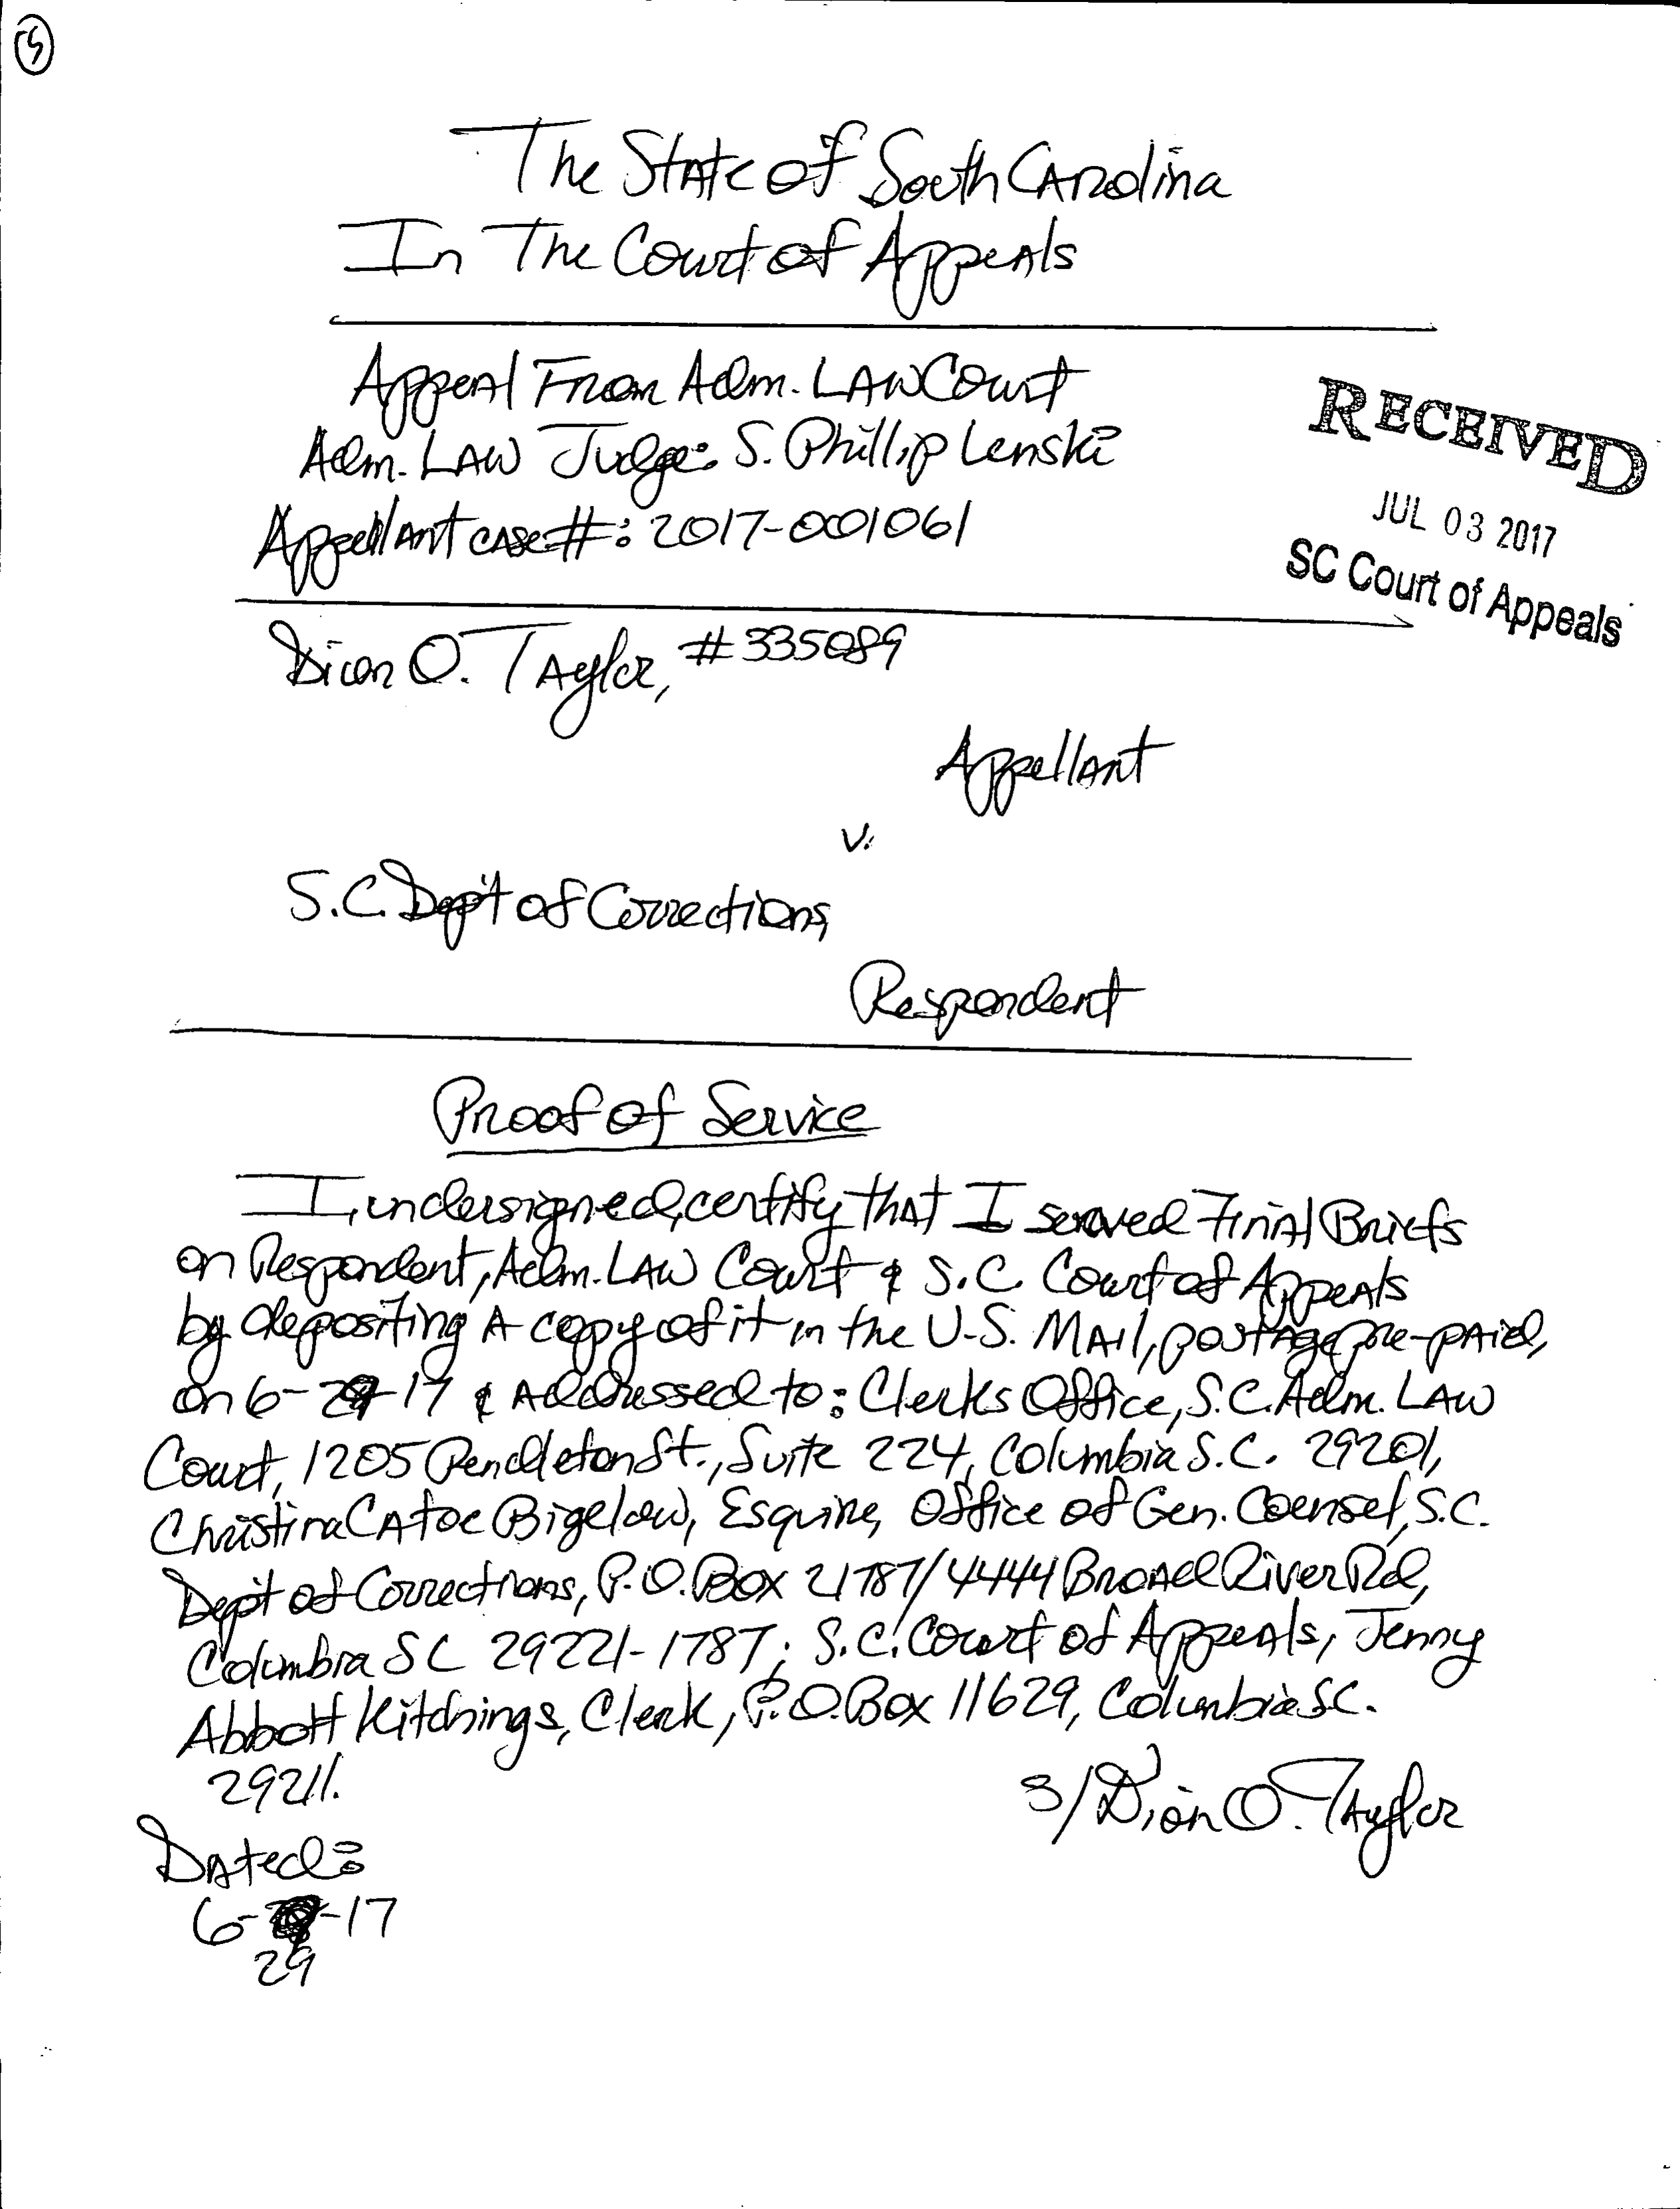 5
The State of South Carolina
In The Court of Appeals
Appeal From Adm. Law Court
Adm. Law Judge: S. Phillip Lenski
Appellant case #: 2017-001061
RECEIVED
JUL 03 2017
SC Court of Appeals
Dion O. Taylor, #335089
Appellant
v.
S.C. Dep't of Corrections,
Respondent
Proof of Service
I, undersigned, certify that I served Final Briefs
on Respondent, Adm. Law Court & S.C. Court of Appeals
by depositing a copy of it in the U.S. Mail, postage pre-paid,
on 6-29-17 & addressed to: Clerks Office, S.C. Adm. Law
Court, 1205 Pendleton St., Suite 224, Columbia S.C. 29201,
Christina Catoe Bigelow, Esquire, Office of Gen. Counsel, S.C.
Dep't of Corrections, P.O. Box 21787/4444 Broad River Rd,
Columbia SC 29221-1787; S.C. Court of Appeals, Jenny
Abbott Kitchings, Clerk, P.O. Box 11629, Columbia S.C.
29211.
s/Dion O. Taylor
Dated:
6- -17
29